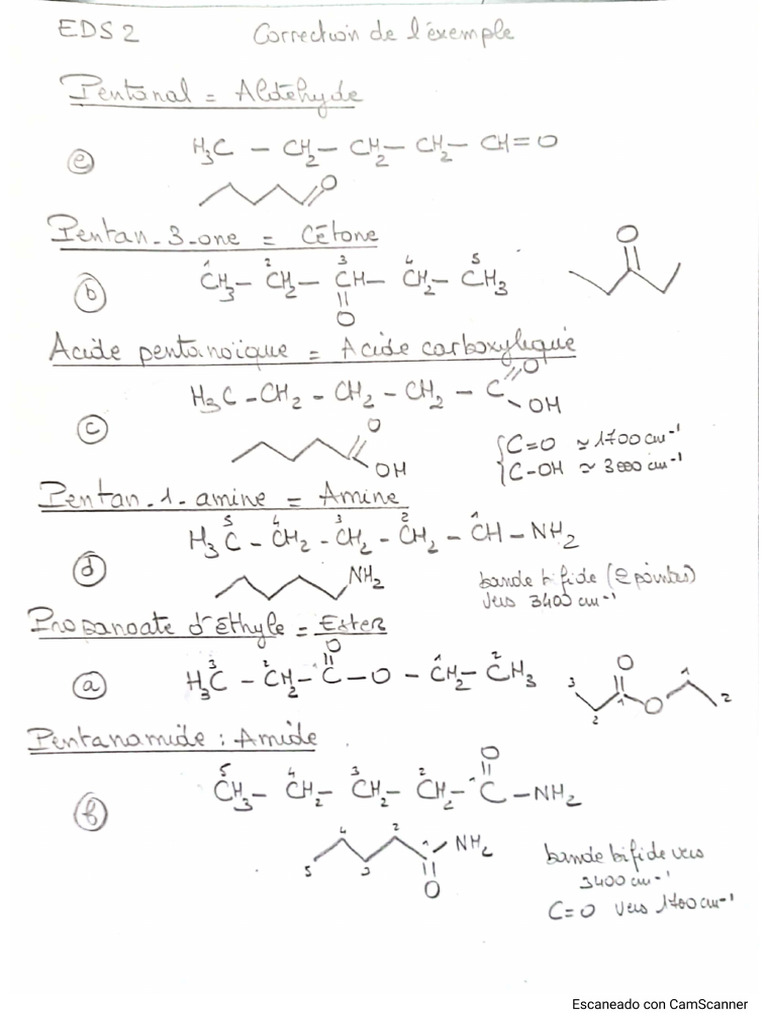 EDS 2 Correction de l'éxemple
Pentanal = Aldéhyde
e H₃C - CH₂ - CH₂ - CH₂ - CH = O
O
Pentan-3-one = Cétone
O
1 2 3 4 5
b CH₃ - CH₂ - CH - CH₂ - CH₃
O
Acide pentanoïque = Acide carboxylique
O
H₃C - CH₂ - CH₂ - CH₂ - C
OH
c
O
OH
C=O ≃ 1700 cm⁻¹
C-OH ≃ 3000 cm⁻¹
Pentan-1-amine = Amine
5 4 3 2 1
H₃C - CH₂ - CH₂ - CH₂ - CH - NH₂
d
NH₂
bande bifide (2 pointes)
vers 3400 cm⁻¹
Propanoate d'éthyle = Ester
O
3 2 1 1 2
a H₃C - CH₂ - C - O - CH₂ - CH₃
O
3 2 1 O 1 2
Pentanamide : Amide
O
5 4 3 2 1
CH₃ - CH₂ - CH₂ - CH₂ - C - NH₂
f
5 4 3 2 1 NH₂
O
bande bifide vers
3400 cm⁻¹
C=O vers 1700 cm⁻¹
Escaneado con CamScanner